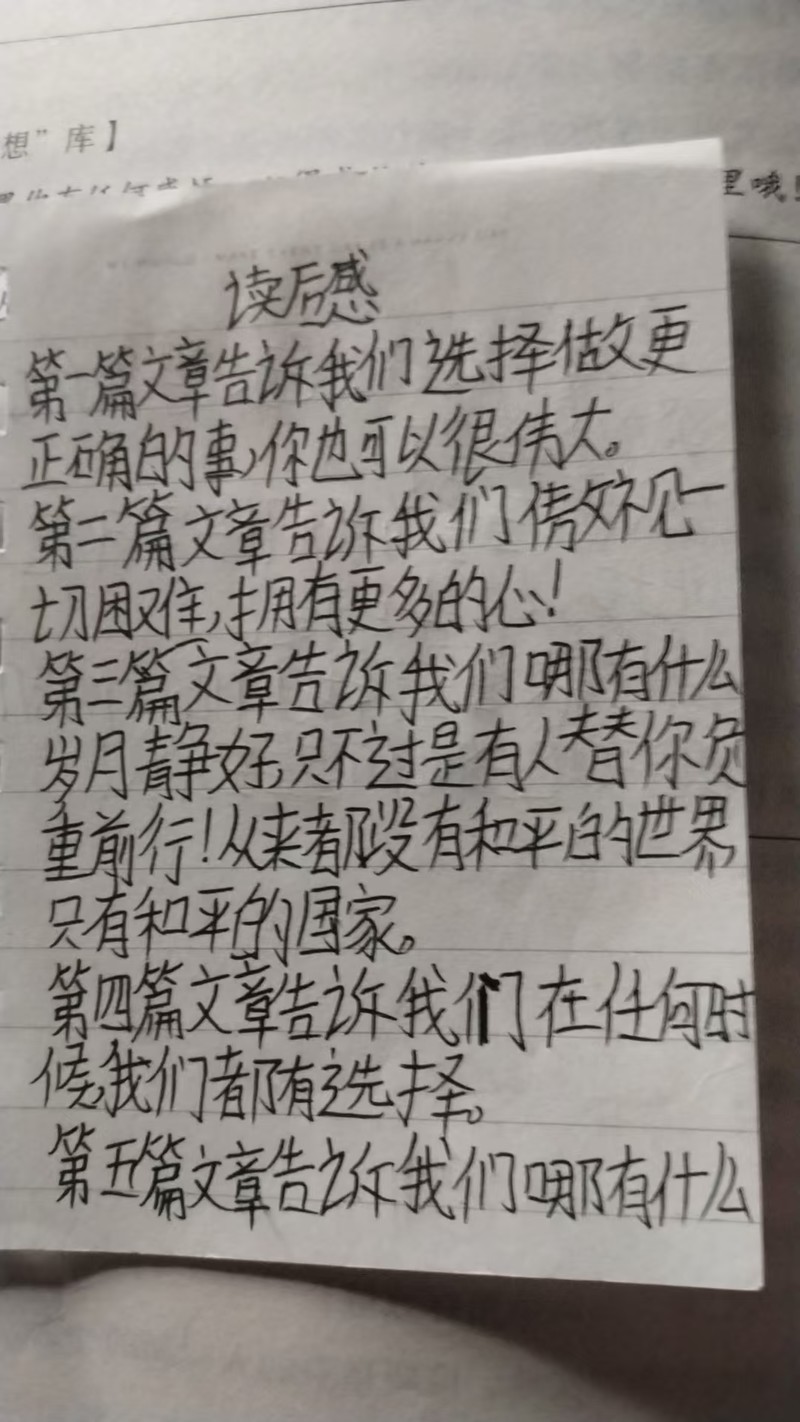 想”库】
里哦!
读后感
第一篇文章告诉我们选择做更
正确的事,你也可以很伟大。
第二篇文章告诉我们傲视一
切困难,拥有更多的心!
第三篇文章告诉我们哪有什么
岁月静好,只不过是有人替你负
重前行!从来都没有和平的世界,
只有和平的国家。
第四篇文章告诉我们在任何时
候,我们都有选择。
第五篇文章告诉我们哪有什么